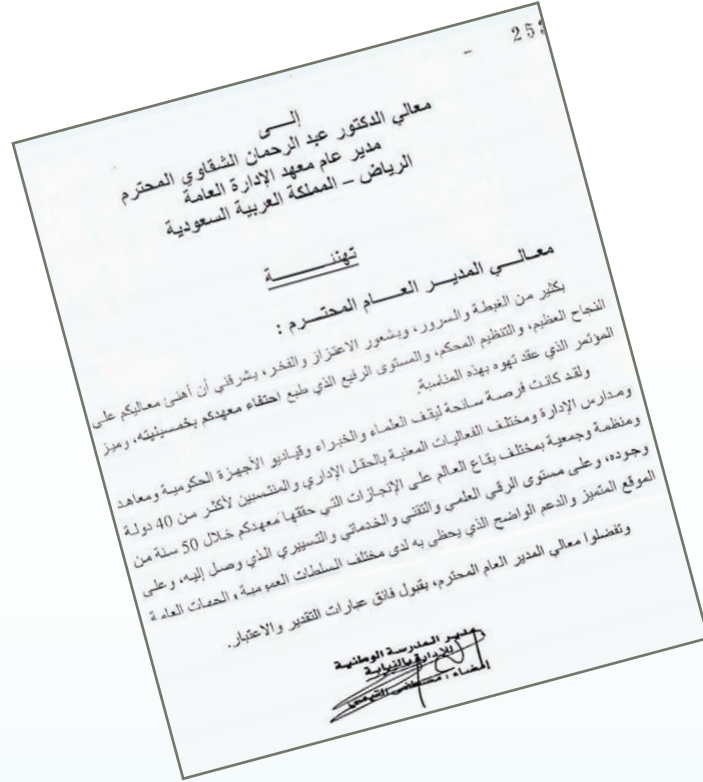 - 253
إلـــى
معالي الدكتور عبد الرحمان الشقاوي المحترم
مدير عام معهد الإدارة العامة
الرياض – المملكة العربية السعودية
تهنئـــــــــة
معـالـــي المديـــر العــــام المحتـــرم :
بكثير من الغبطة والسرور، وبشعور الاعتزاز والفخر، يشرفني أن أهنئ معاليكم على
النجاح العظيم، والتنظيم المحكم، والمستوى الرفيع الذي طبع احتفاء معهدكم بخمسينيته، وميز
المؤتمر الذي عقدتموه بهذه المناسبة.
ولقد كانت فرصة سانحة ليقف العلماء والخبراء وقياديو الأجهزة الحكومية ومعاهد
ومدارس الإدارة ومختلف الفعاليات المعنية بالحقل الإداري والمنتسبين لأكثر من 40 دولة
ومنظمة وجمعية بمختلف بقاع العالم على الإنجازات التي حققها معهدكم خلال 50 سنة من
وجوده، وعلى مستوى الرقي العلمي والتقني والخدماتي والتسييري الذي وصل إليه، وعلى
الموقع المتميز والدعم الواضح الذي يحظى به لدى مختلف السلطات العمومية والجهات العامة
وتفضلوا معالي المدير العام المحترم، بقبول فائق عبارات التقدير والاعتبار.
مدير المدرسة الوطنية
للإدارة بالنيابة
إمضاء : مصطفى